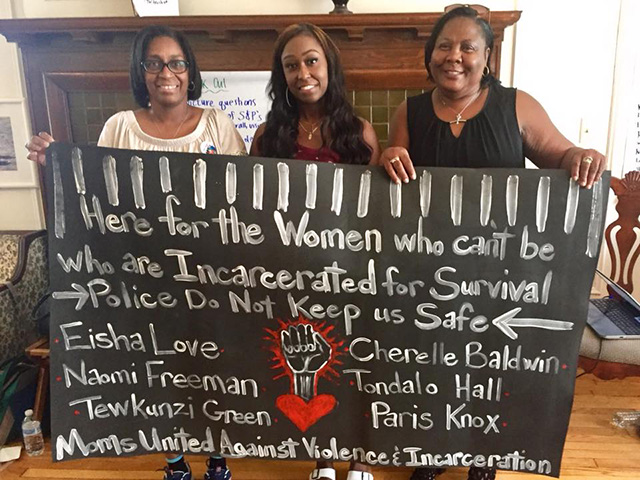 Out
cure questions
of S&P's
Here for the Women who can't be
who are Incarcerated for Survival
→Police Do Not Keep us Safe←
Eisha Love
· Naomi Freeman
· Tewkunzi Green ·
Cherelle Baldwin ·
Tondalo Hall ·
Paris Knox ·
Moms United Against Violence & Incarceration